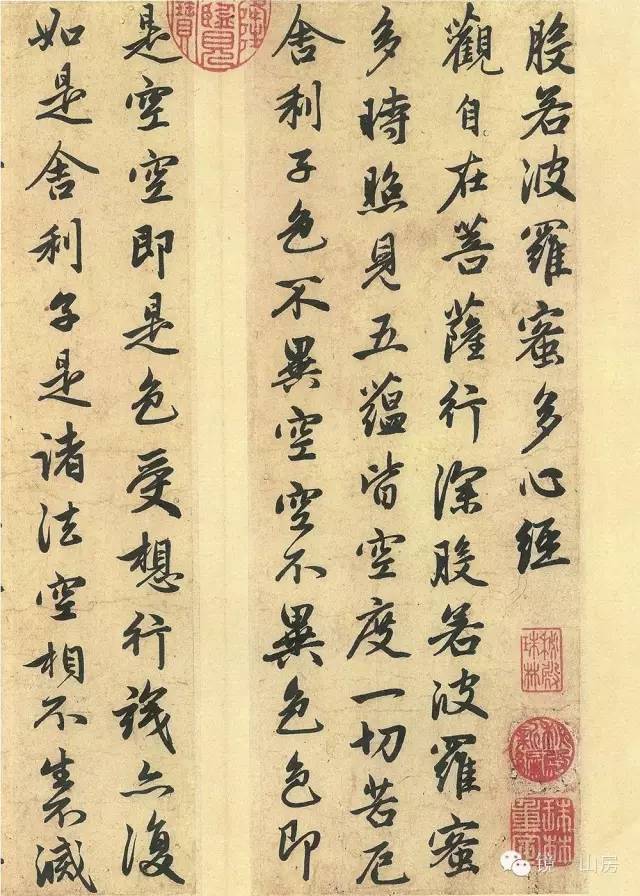 般若波羅蜜多心經
觀自在菩薩行深般若波羅蜜
多時照見五蘊皆空度一切苦厄
舍利子色不異空空不異色色即
是空空即是色受想行識亦復
如是舍利子是諸法空相不生不滅
秘殿珠林
珠林重定
镜一山房